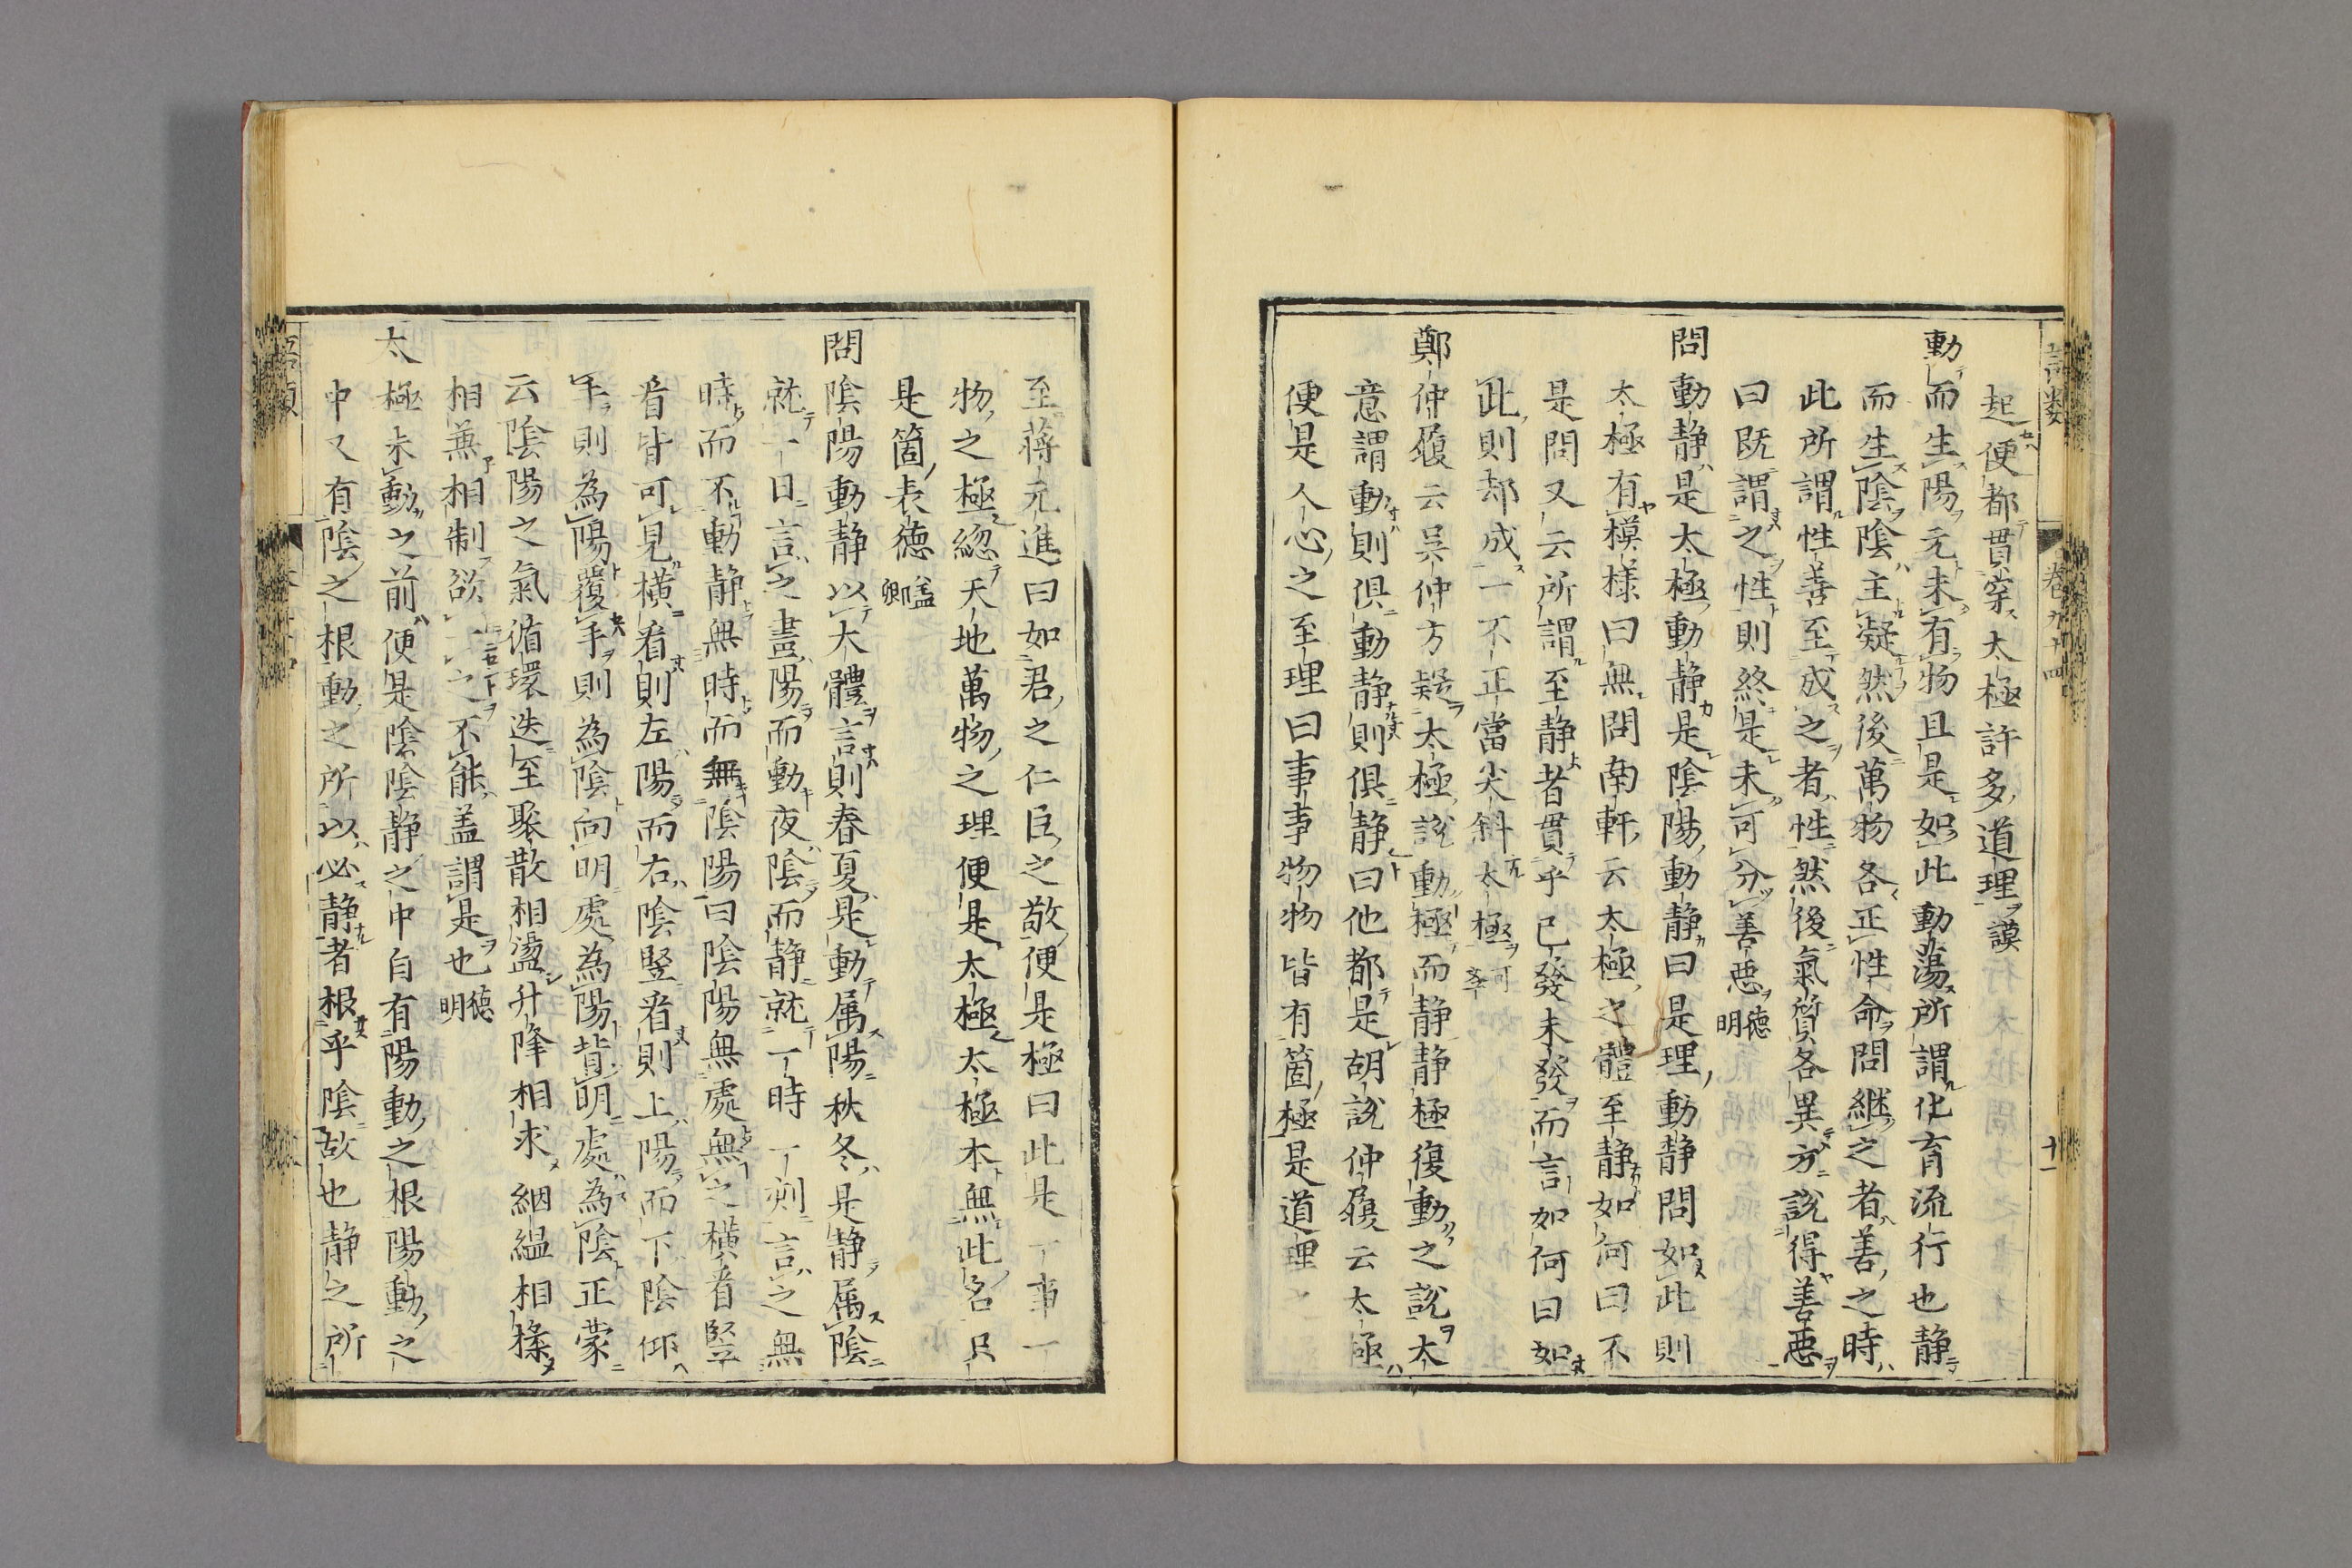 語類
卷九十四
十一
起便都貫索太極許多道理謨
動而生陽元未有物且是如此動蕩所謂化育流行也静
而生陰陰主凝然後萬物各正性命問継之者善之時
此所謂性善至成之者性然後氣質各異方說得善惡
曰既謂之性則終是未可分善惡德明
問動静是太極動静是陰陽動静曰是理動静問如此則
太極有模様曰無問南軒云太極之體至静如何曰不
是問又云所謂至静者貫乎已發未發而言如何曰如
此則却成一不正當尖斜太極可學
鄭仲履云吳仲方疑太極說動極而静静極復動之說太
意謂動則俱動静則俱静曰他都是胡說仲履云太極
便是人心之至理曰事事物物皆有箇極是道理
至蔣元進曰如君之仁臣之敬便是極曰此是一事一
物之極総天地萬物之理便是太極太極本無此名只
是箇表德盖卿
問陰陽動静以大體言則春夏是動属陽秋冬是静属陰
就一日言之晝陽而動夜陰而静就一時一刻言之無
時而不動静無時而無陰陽曰陰陽無處無之横看竪
看皆可見横看則左陽而右陰竪看則上陽而下陰仰
手則為陽覆手則為陰向明處為陽背明處為陰正蒙
云陰陽之氣循環迭至聚散相盪升降相求絪緼相揉
相兼相制欲一之不能盖謂是也德明
太極未動之前便是陰陰静之中自有陽動之根陽動之
中又有陰之根動之所以必静者根乎陰故也静之所
語類